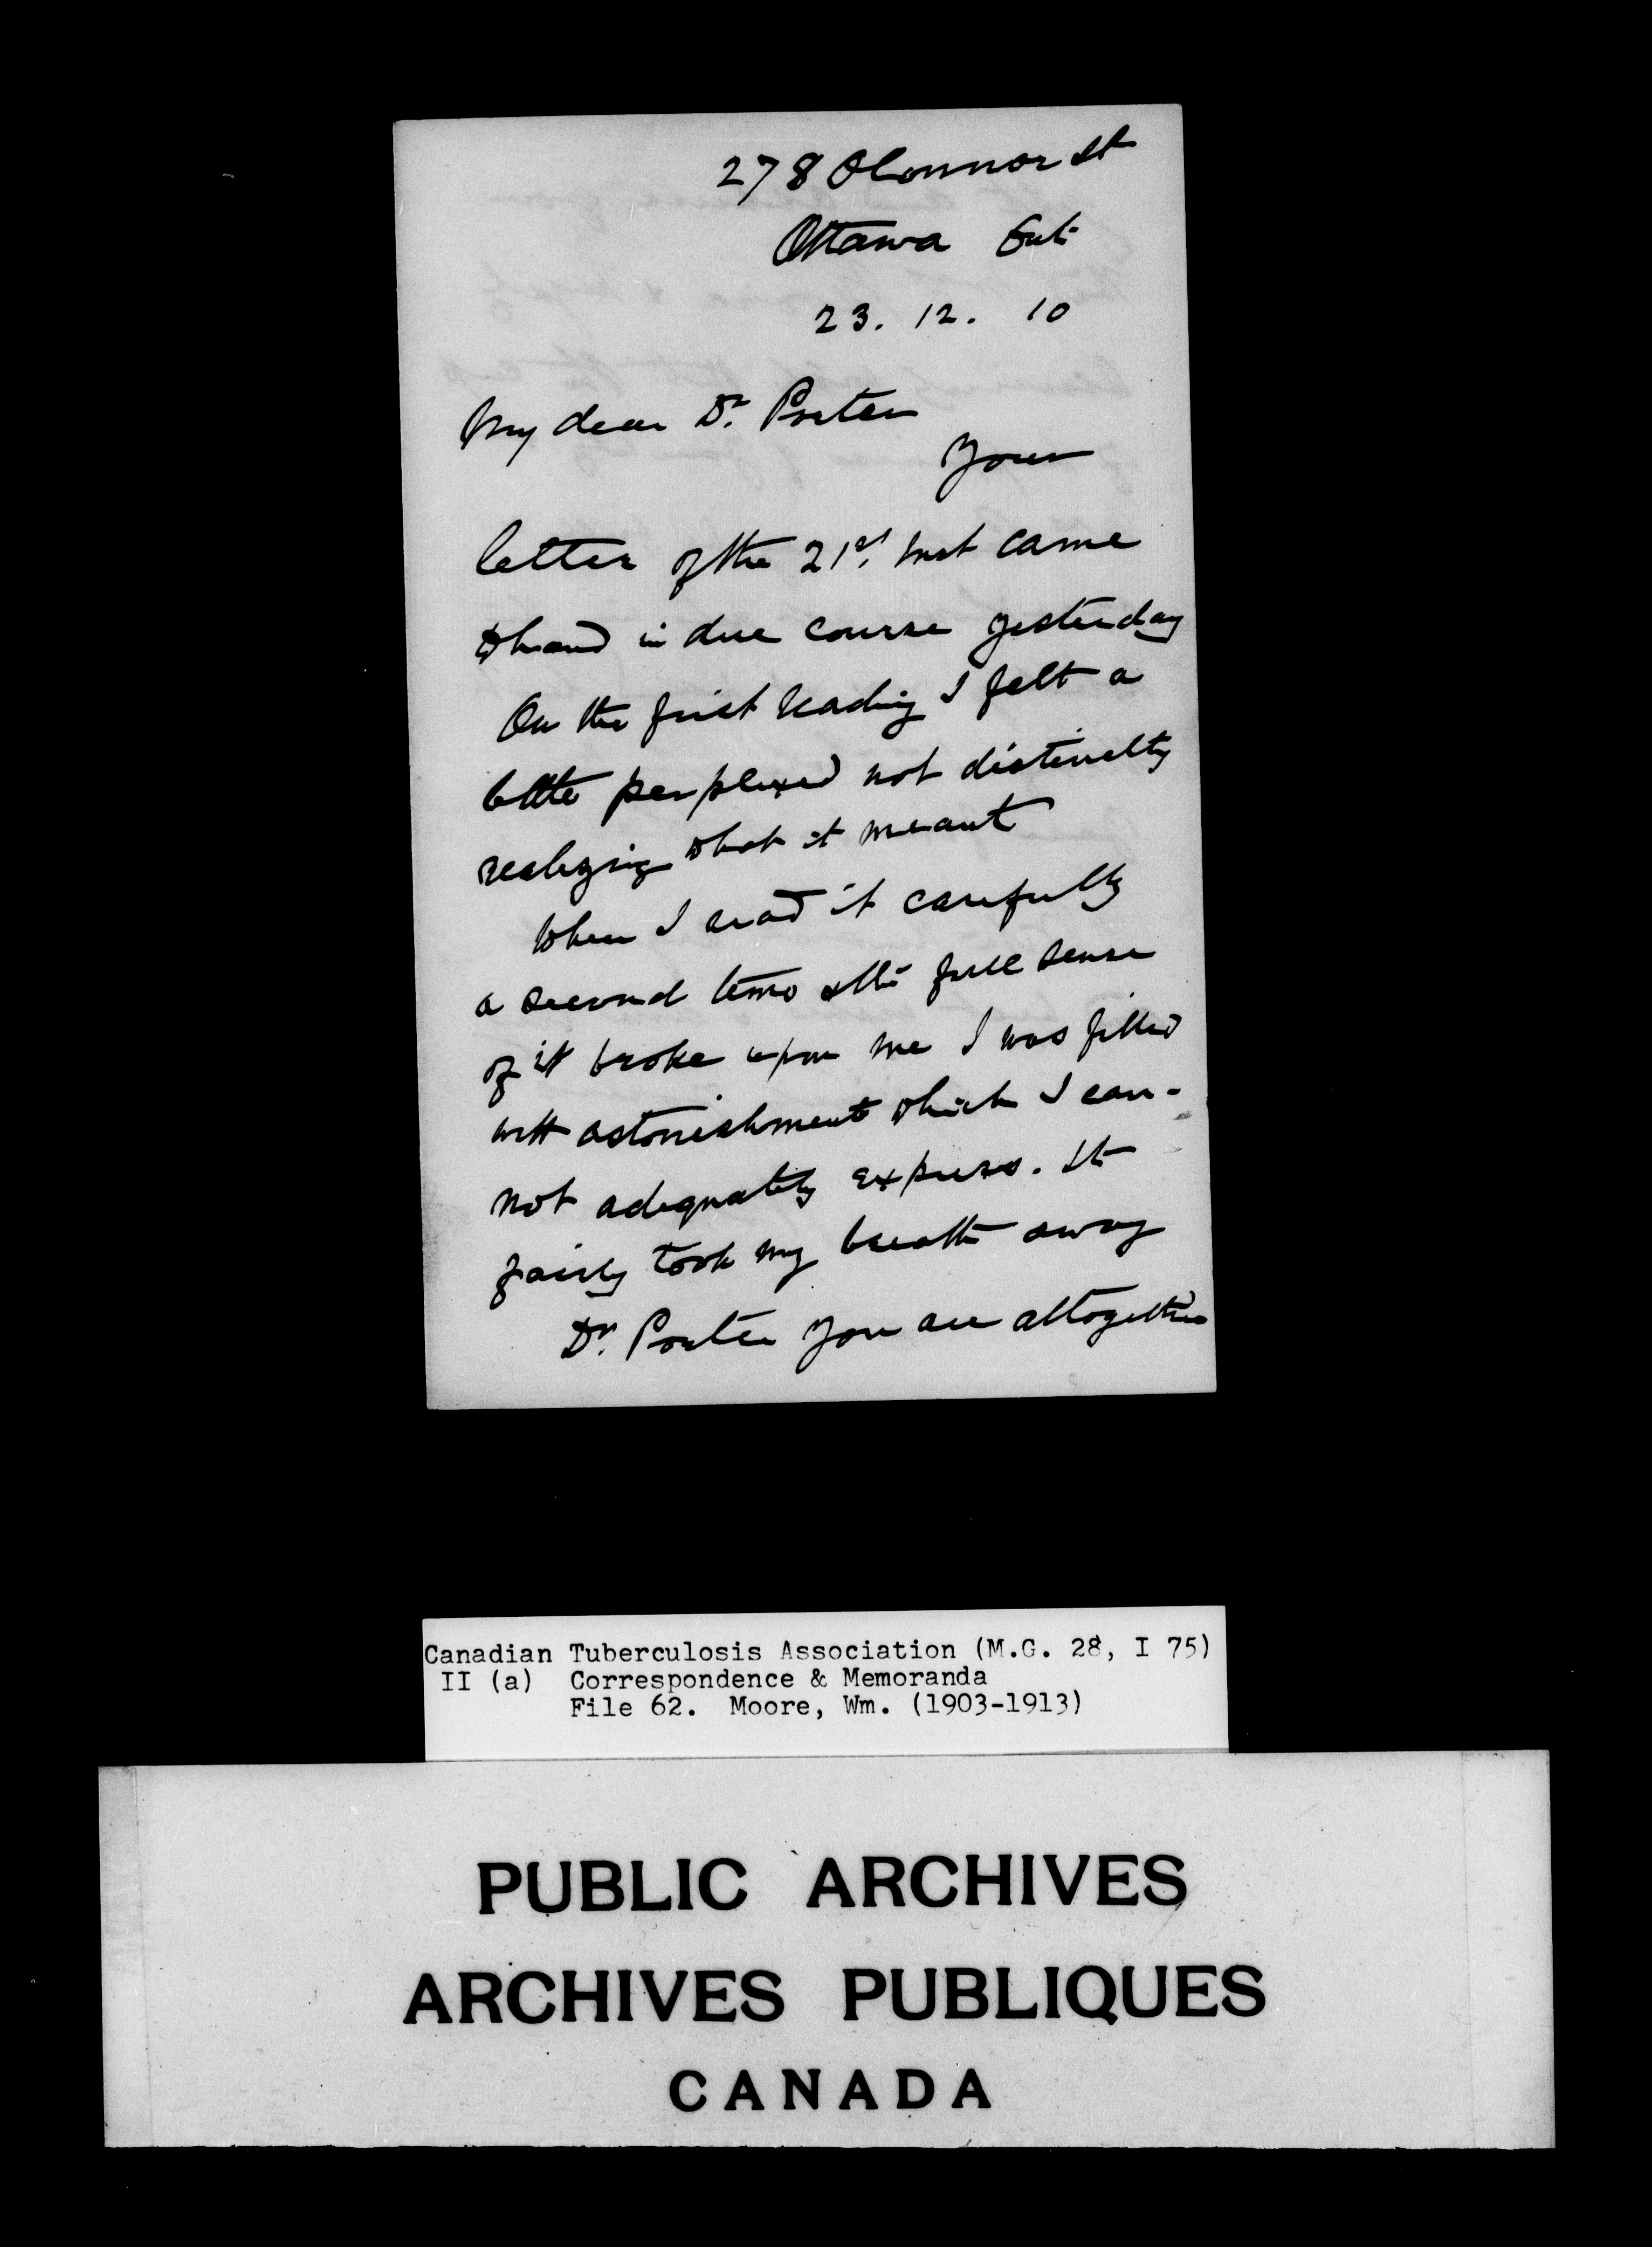 278 O'Connor St
Ottawa Ont
23. 12. 10
My dear Dr. Porter
Your
letter of the 21st. inst came
to hand in due course yesterday
On the first reading I felt a
little perplexed not distinctly
realizing what it meant
When I read it carefully
a second time & the full sense
of it broke upon me I was filled
with astonishment which I can-
not adequately express. It
fairly took my breath away
Dr. Porter you are altogether
Canadian Tuberculosis Association (M.G. 28, I 75)
II (a) Correspondence & Memoranda
File 62. Moore, Wm. (1903-1913)
PUBLIC ARCHIVES
ARCHIVES PUBLIQUES
CANADA